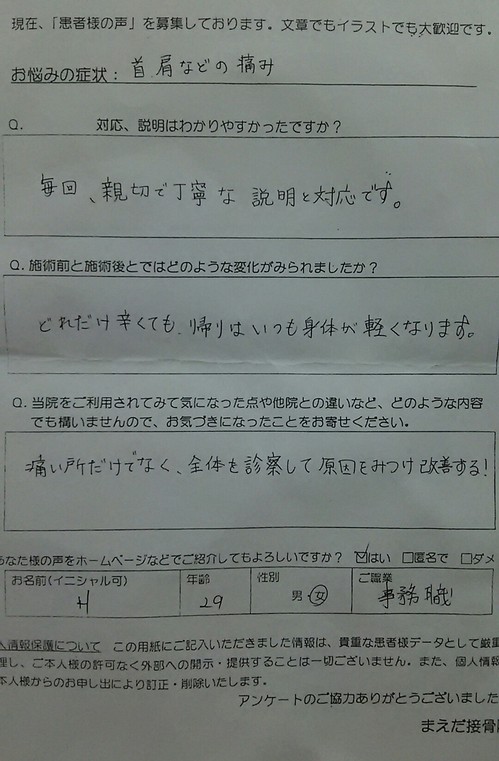 現在、「患者様の声」を募集しております。文章でもイラストでも大歓迎です。
お悩みの症状： 首 肩などの痛み
Q. 対応、説明はわかりやすかったですか？
毎回、親切で丁寧な 説明と対応です。
Q. 施術前と施術後とではどのような変化がみられましたか？
どれだけ辛くても、帰りはいつも身体が軽くなります。
Q. 当院をご利用されてみて気になった点や他院との違いなど、どのような内容
でも構いませんので、お気づきになったことをお寄せください。
痛い所だけでなく、全体を診察して原因をみつけ改善する！
あなた様の声をホームページなどでご紹介してもよろしいですか？ ☑はい □匿名で □ダメ
お名前(イニシャル可) 年齢 性別 ご職業
H 29 男・女 事務職
人情報保護について この用紙にご記入いただきました情報は、貴重な患者様データとして厳重
理し、ご本人様の許可なく外部への開示・提供することは一切ございません。また、個人情報
本人様からのお申し出により訂正・削除いたします。
アンケートのご協力ありがとうございました
まえだ接骨